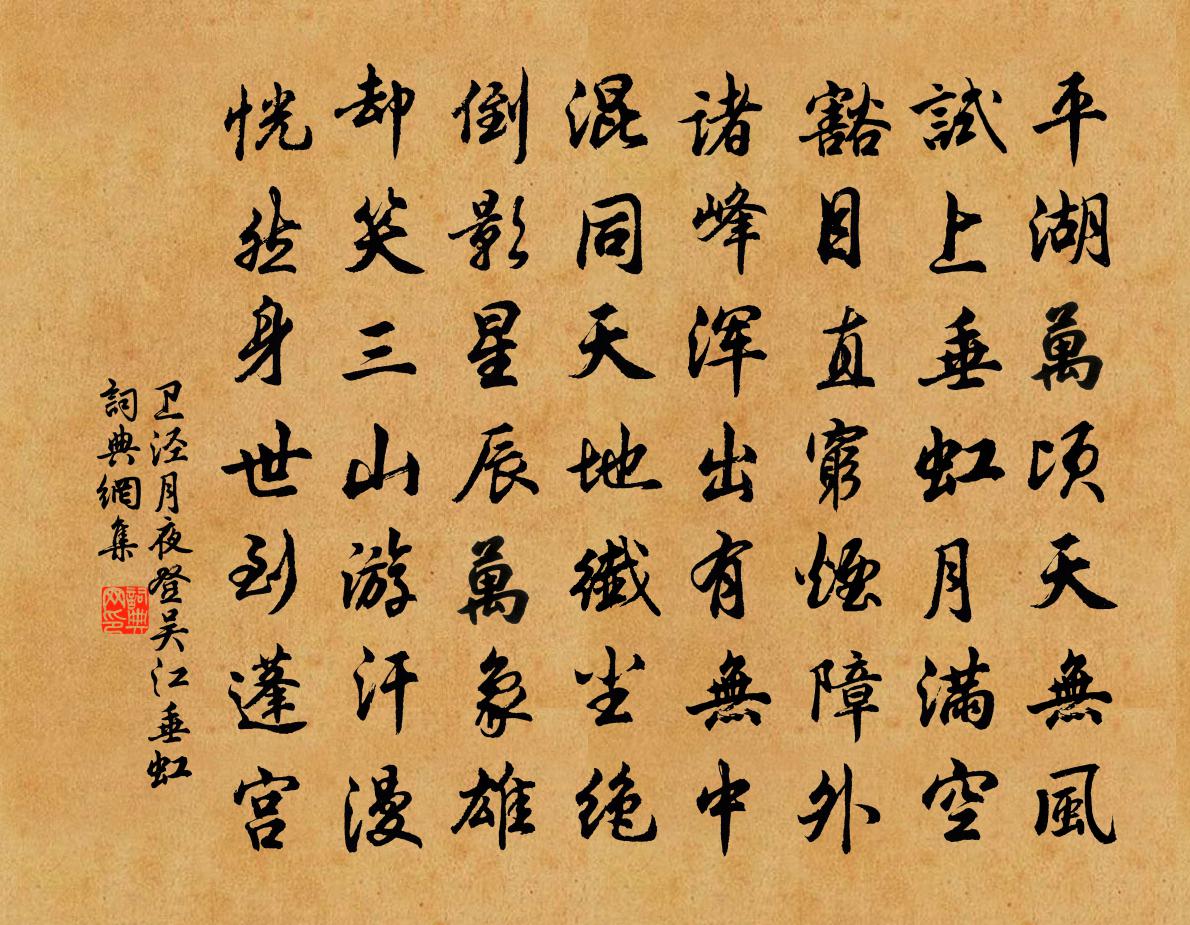 平湖萬頃天無風
試上垂虹月滿空
豁目直窮煙障外
諸峰浑出有無中
混同天地纖尘绝
倒影星辰萬象雄
却笑三山游汗漫
恍然身世到蓬宫
卫泾月夜登吴江垂虹
詞典網集
詞典网印